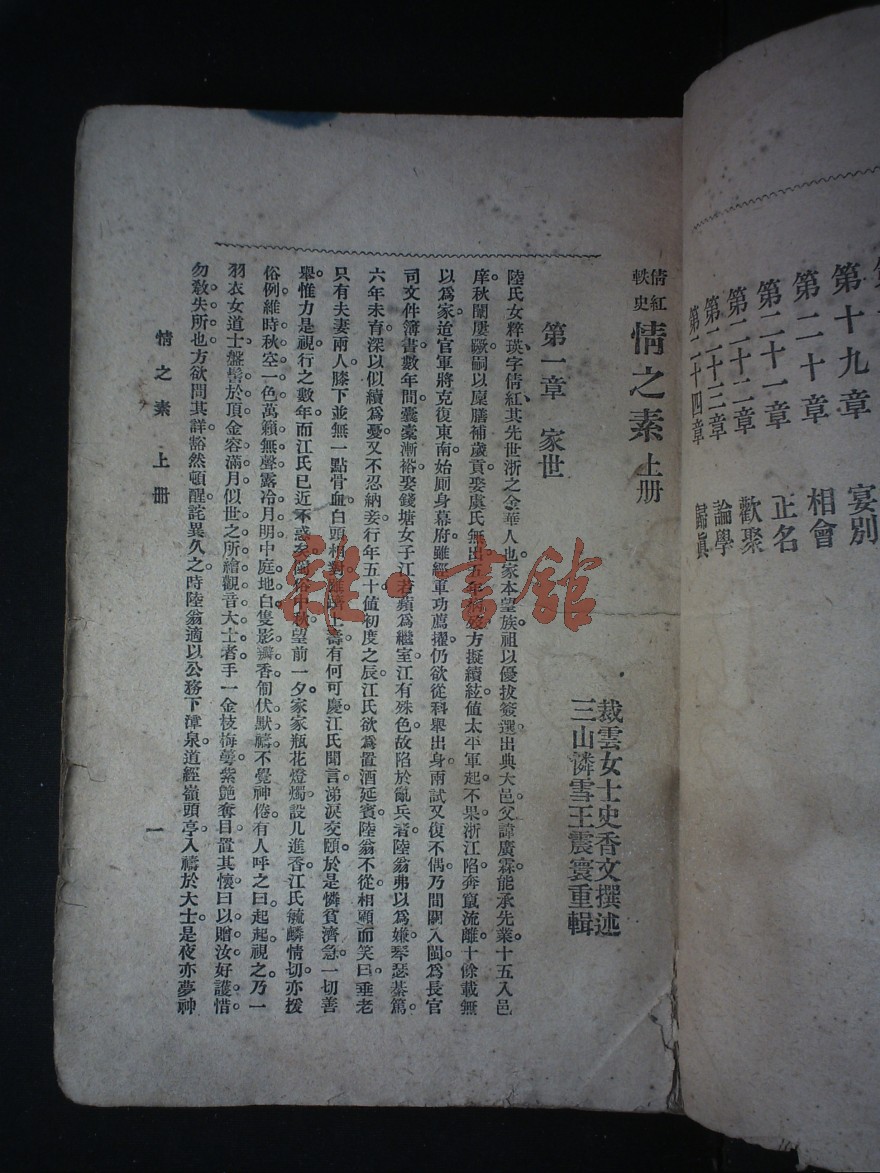 第十九章 宴別
第二十章 相會
第二十一章 正名
第二十二章 歡聚
第二十三章 論學
第二十四章 歸眞
倩紅軼史 情之素 上册
裁雲女士史香文撰述
三山憐雪王震寰重輯
第一章 家世
陸氏女粹瑛字倩紅其先世浙之金華人也家本望族祖以優拔簽選出典大邑父諱廣霖能承先業十五入邑
庠秋闈屢蹶嗣以廩膳補歲貢娶虞氏無出五年病歿方擬續絃值太平軍起不果浙江陷奔竄流離十餘載無
以爲家迨官軍將克復東南始厠身幕府雖經軍功薦擢仍欲從科舉出身兩試又復不偶乃間關入閩爲長官
司文件簿書數年間囊槖漸裕娶錢塘女子江若蘋爲繼室江有殊色故陷於亂兵者陸翁弗以爲嫌琴瑟綦篤
六年未育深以似續爲憂又不忍納妾行年五十值初度之辰江氏欲爲置酒延賓陸翁不從相顧而笑曰垂老
只有夫妻兩人膝下並無一點骨血白頭相對雖躋上壽有何可慶江氏聞言涕淚交頤於是憐貧濟急一切善
舉惟力是視行之數年而江氏已近不惑矣閩俗中秋望前一夕家家瓶花燈燭設几進香江氏毓麟情切亦援
俗例維時秋空一色萬籟無聲露冷月明中庭地白隻影瓣香匍伏默禱不覺神倦有人呼之曰起起視之乃一
羽衣女道士盤髻於頂金容滿月似世之所繪觀音大士者手一金枝梅萼紫艷奪目置其懷曰以贈汝好護惜
勿敎失所也方欲問其詳豁然頓醒詫異久之時陸翁適以公務下漳泉道經嶺頭亭入禱於大士是夜亦夢神
情之素 上册 一
雜·書館